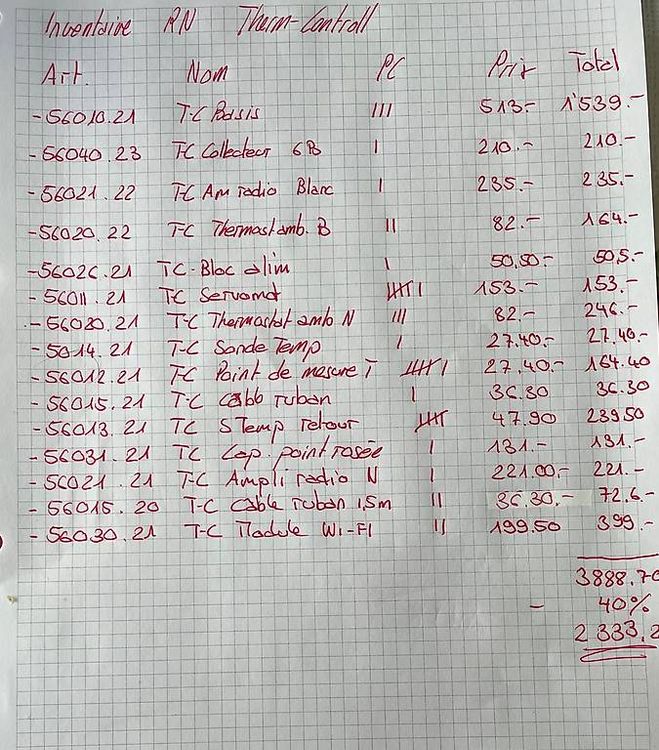 Inventaire RN Therm-Controll
Art. Nom PC Prix Total
-56010.21 T-C Basis III 513.- 1'539.-
-56040.23 T-C Collecteur 6B I 210.- 210.-
-56021.22 T-C Am radio Blanc I 235.- 235.-
-56020.22 T-C Thermost amb. B II 82.- 164.-
-56026.21 TC-Bloc alim I 50,50.- 50,5.-
-56011.21 T-C Servomot IIIII I 153.- 153.-
-56020.21 T-C Thermostat amb N III 82.- 246.-
-5014.21 T-C Sonde Temp I 27.40.- 27.40.-
-56012.21 T-C Point de mesure T IIIII I 27,40.- 164.40
-56015.21 T-C cabb ruban I 36.30 36.30
-56013.21 TC S Temp retour IIIII 47.90 239.50
-56031.21 TC Cap. point rosée I 131.- 131.-
-56021.21 T-C Ampli radio N I 221.00.- 221.-
-56015.20 T-C Cable ruban 1,5m II 36.30.- 72.6.-
-56030.21 T-C Module Wi-FI II 199.50 399.-
3888.70
- 40%
2 333,2